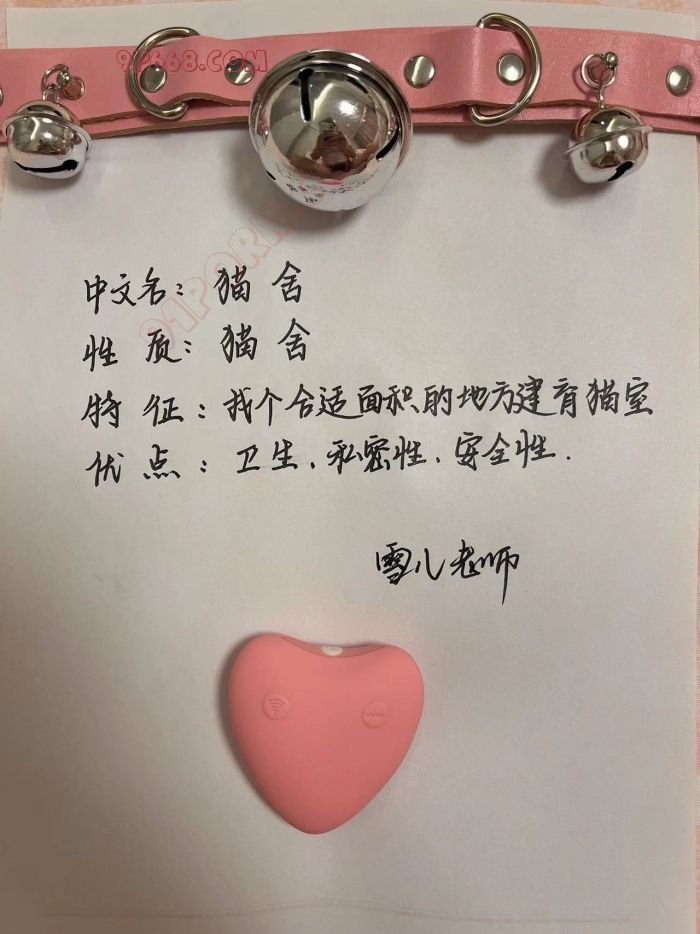 9P668.COM
91PORN
中文名：猫舍
性质：猫舍
特征：找个合适面积的地方建育猫室
优点：卫生、私密性、安全性.
雪儿老师